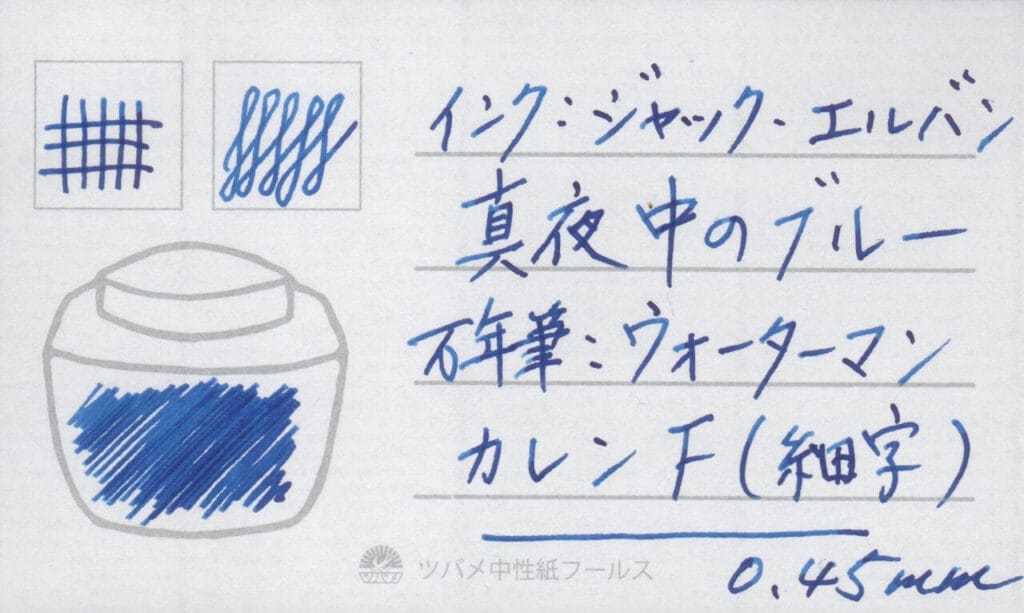 インク:ジャック・エルバン
真夜中のブルー
万年筆:ウォーターマン
カレンF(細字)
0.45mm
ツバメ中性紙フールス